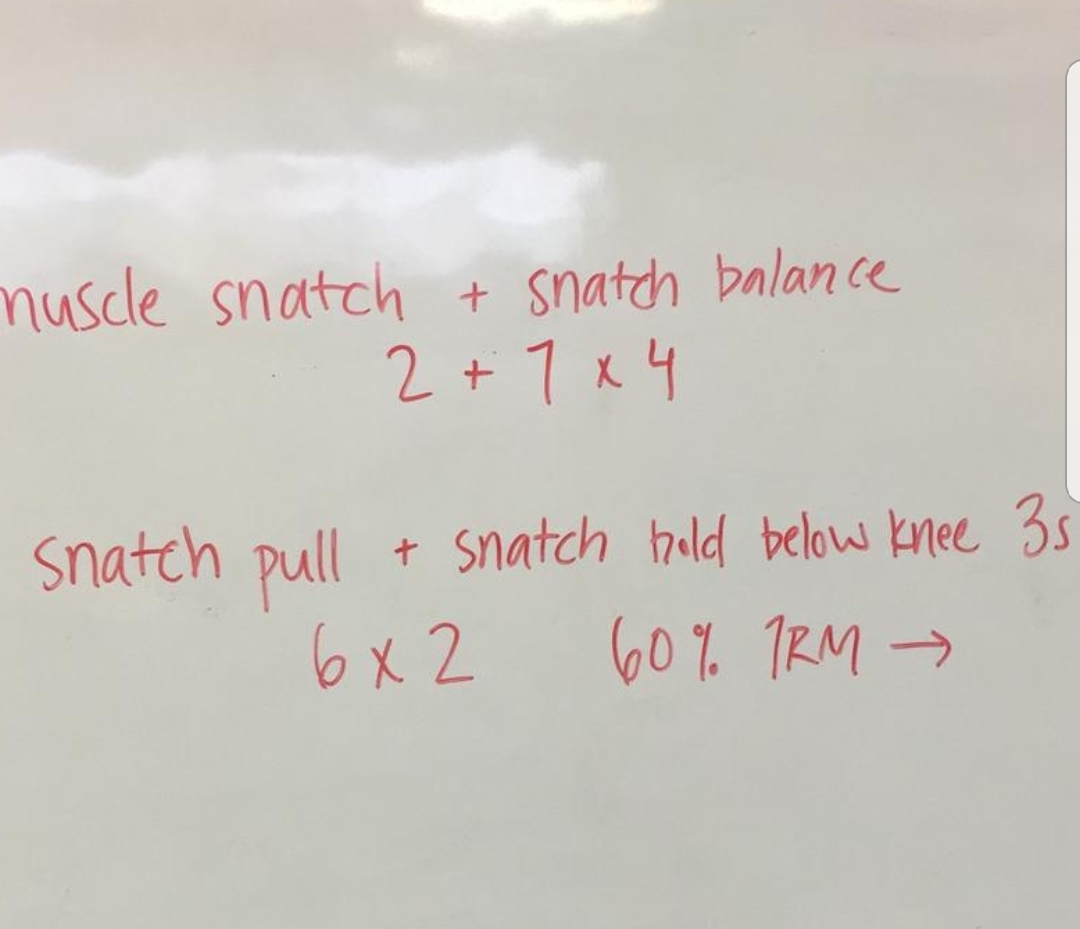 muscle snatch + snatch balance
2 + 1 x 4
snatch pull + snatch hold below knee 3s
6 x 2 60% 1RM →